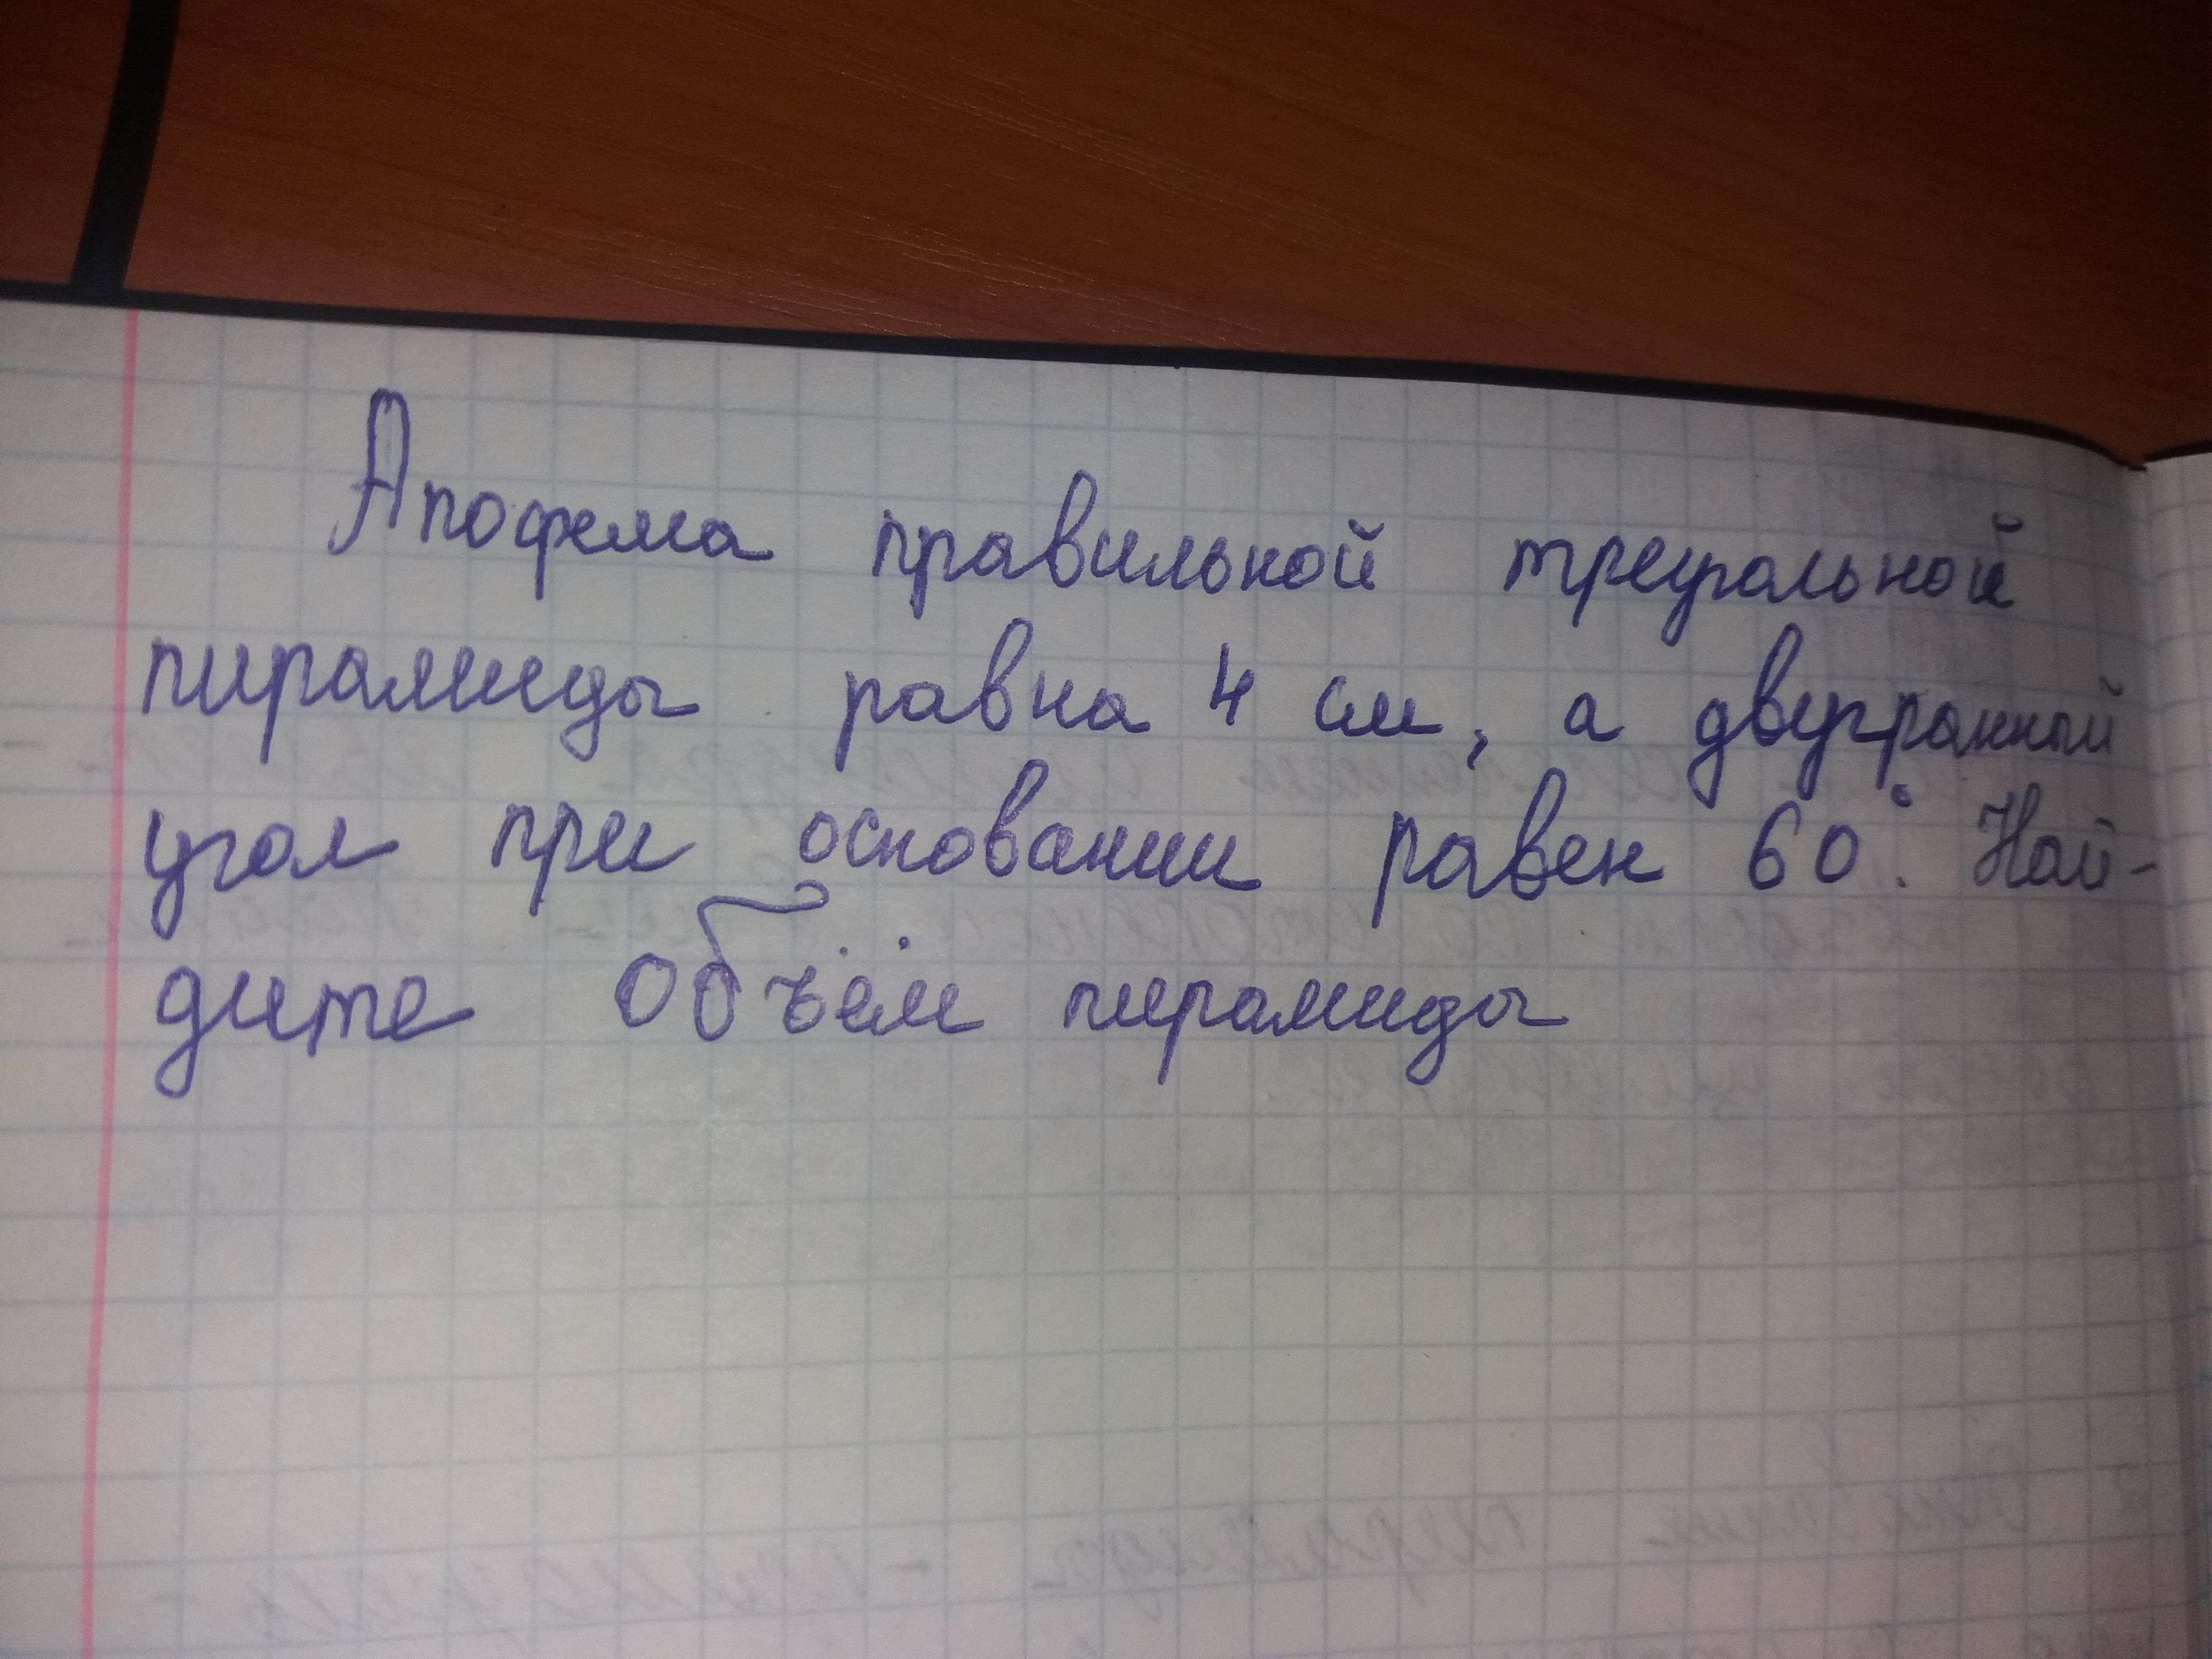 Апофема правильной треугольной
пирамиды равна 4 см, а двугранный
угол при основании равен 60°. Най-
дите объём пирамиды